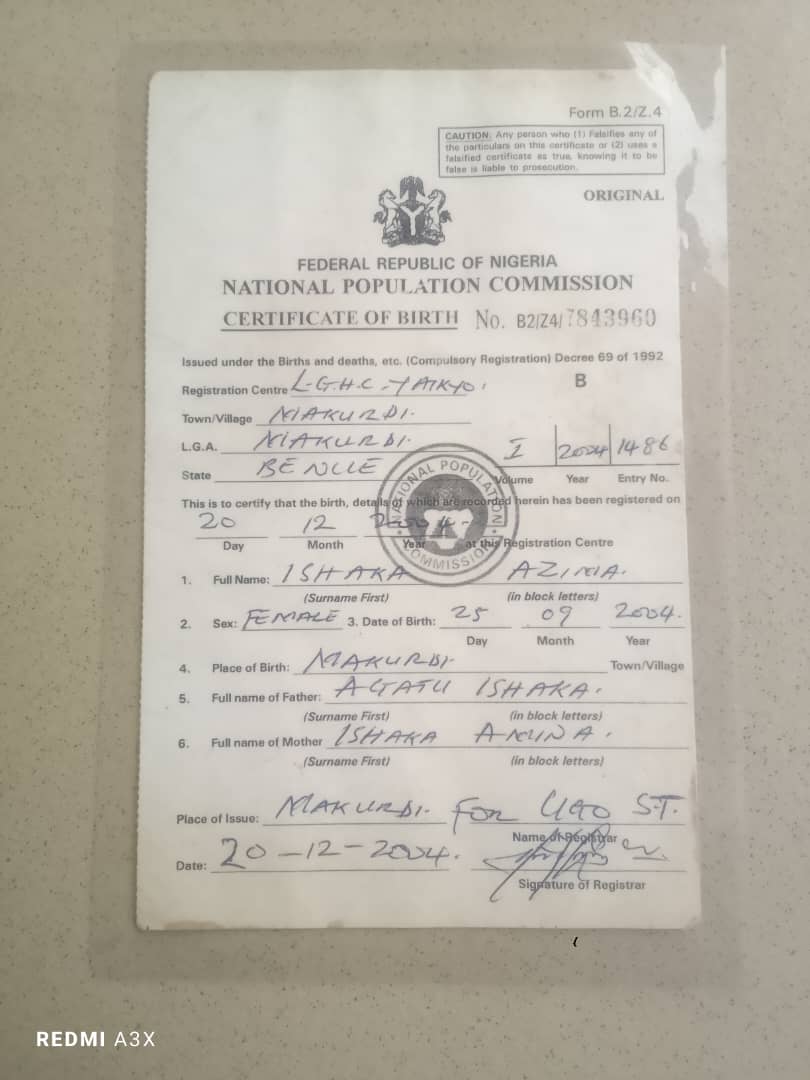 Form B.2/Z.4
CAUTION: Any person who (1) Falsifies any of
the particulars on this certificate or (2) uses a
falsified certificate as true, knowing it to be
false is liable to prosecution.
ORIGINAL
FEDERAL REPUBLIC OF NIGERIA
NATIONAL POPULATION COMMISSION
CERTIFICATE OF BIRTH No. B2/Z4/7843960
Issued under the Births and deaths, etc. (Compulsory Registration) Decree 69 of 1992
Registration Centre L.G.H.C. YAIKYO. B
Town/Village MAKURDI.
L.G.A. MAKURDI. I 2004 1486
State BENUE Volume Year Entry No.
NATIONAL POPULATION COMMISSION
This is to certify that the birth, details of which are recorded herein has been registered on
20 12 2004
Day Month Year at this Registration Centre
1. Full Name: ISHAKA AZIMA.
(Surname First) (in block letters)
2. Sex: FEMALE 3. Date of Birth: 25 09 2004.
Day Month Year
4. Place of Birth: MAKURDI. Town/Village
5. Full name of Father: AGATU ISHAKA.
(Surname First) (in block letters)
6. Full name of Mother ISHAKA AMINA.
(Surname First) (in block letters)
Place of Issue: MAKURDI. FOR S.T.
Name of Registrar
Date: 20-12-2004.
Signature of Registrar
REDMI A3X